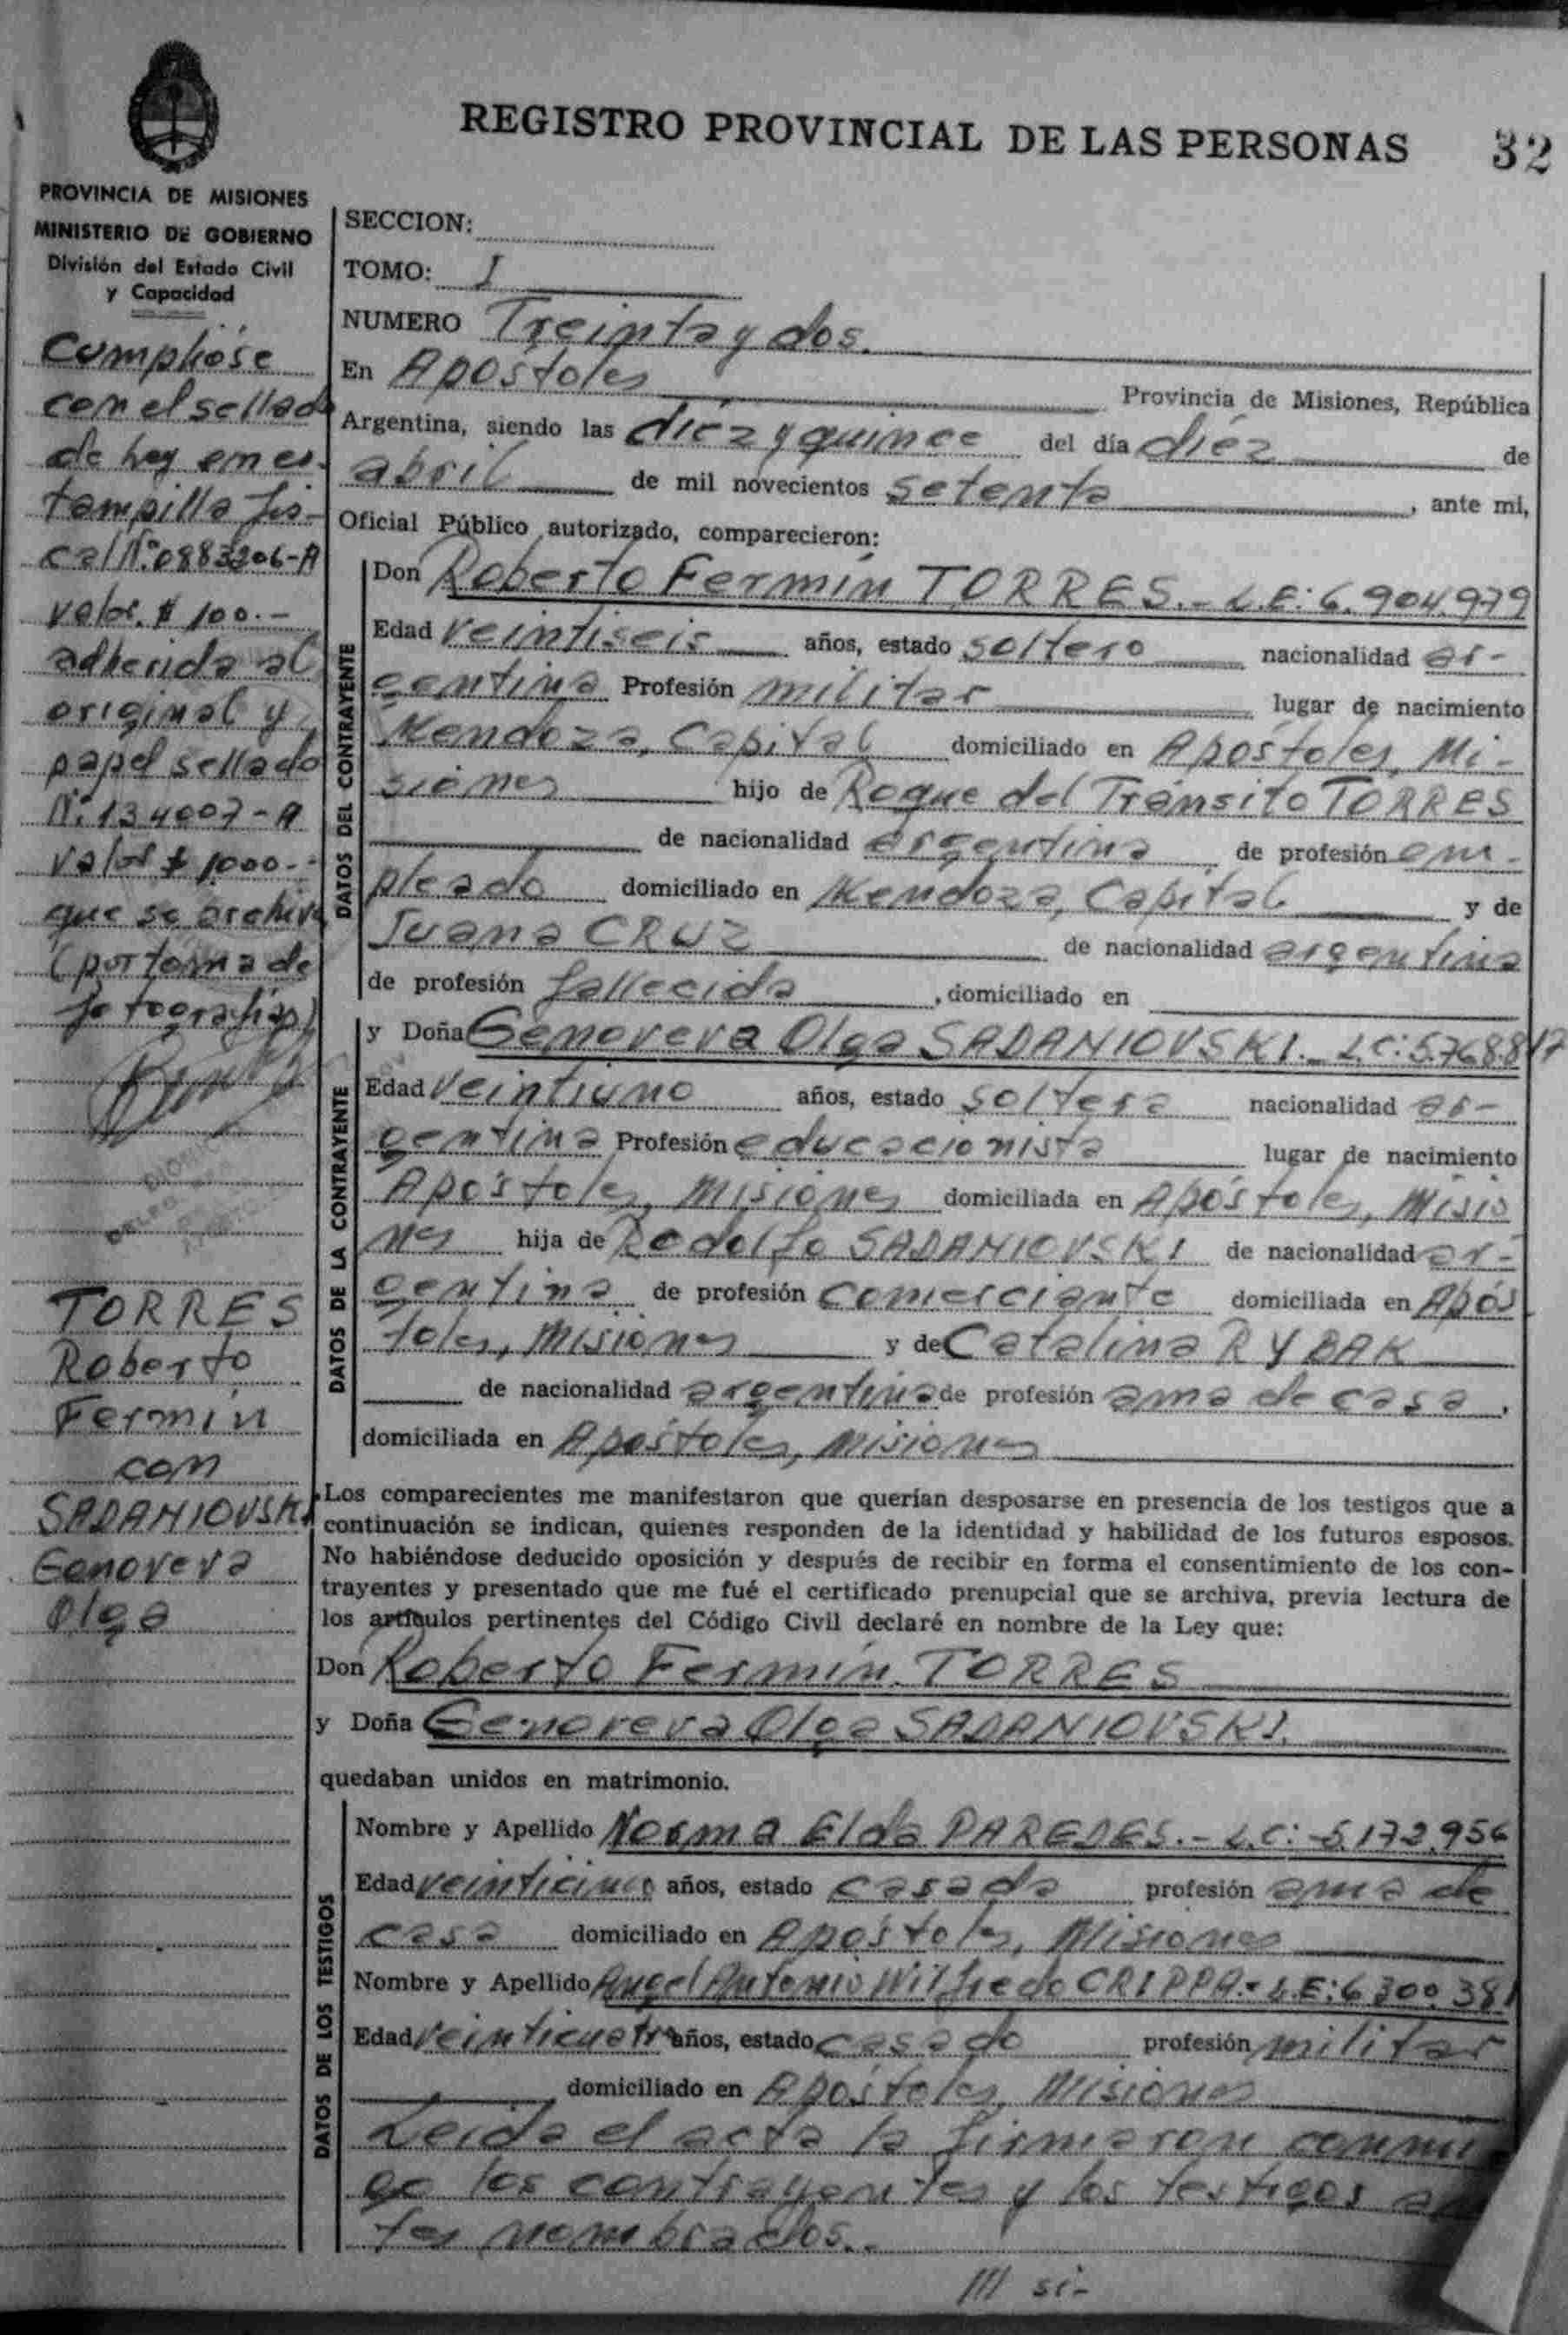 REGISTRO PROVINCIAL DE LAS PERSONAS 32
PROVINCIA DE MISIONES
MINISTERIO DE GOBIERNO
División del Estado Civil
y Capacidad
Cumplióse
con el sellado
de ley en es-
tampilla fis-
cal N°:0883206-A
valor $ 100.-
adherida al
original y
papel sellado
N°: 134007-A
valor $ 1000.-
que se archiva
(por toma de
fotografías)
TORRES
Roberto
Fermín
con
SADANIOVSKI
Genoveva
Olga
SECCION:
TOMO: I
NUMERO Treinta y dos.
En Apóstoles Provincia de Misiones, República
Argentina, siendo las diéz y quince del día diéz de
abril de mil novecientos setenta, ante mi,
Oficial Público autorizado, comparecieron:
DATOS DEL CONTRAYENTE
Don Roberto Fermín TORRES.- L.E: 6.904.979
Edad veintiseis años, estado soltero nacionalidad ar-
gentina Profesión militar lugar de nacimiento
Mendoza, Capital domiciliado en Apóstoles, Mi-
siones hijo de Roque del Tránsito TORRES
de nacionalidad argentina de profesión em-
pleado domiciliado en Mendoza, Capital y de
Juana CRUZ de nacionalidad argentina
de profesión fallecida, domiciliado en
DATOS DE LA CONTRAYENTE
y Doña Genoveva Olga SADANIOVSKI.- L.C: 5.768.817
Edad veintiuno años, estado soltera nacionalidad ar-
gentina Profesión educacionista lugar de nacimiento
Apóstoles, Misiones domiciliada en Apóstoles, Misio
nes hija de Rodolfo SADANIOVSKI de nacionalidad ar-
gentina de profesión comerciante domiciliada en Após
toles, Misiones y de Catalina RYBAK
de nacionalidad argentina de profesión ama de casa,
domiciliada en Apóstoles, Misiones
Los comparecientes me manifestaron que querían desposarse en presencia de los testigos que a
continuación se indican, quienes responden de la identidad y habilidad de los futuros esposos.
No habiéndose deducido oposición y después de recibir en forma el consentimiento de los con-
trayentes y presentado que me fué el certificado prenupcial que se archiva, previa lectura de
los artículos pertinentes del Código Civil declaré en nombre de la Ley que:
Don Roberto Fermín TORRES
y Doña Genoveva Olga SADANIOVSKI.
quedaban unidos en matrimonio.
DATOS DE LOS TESTIGOS
Nombre y Apellido Norma Elda PAREDES.- L.C: 5.172.956
Edad veinticinco años, estado casada profesión ama de
casa domiciliado en Apóstoles, Misiones
Nombre y Apellido Angel Antonio Wilfredo CRIPPA.- L.E: 6.300.381
Edad veinticuatro años, estado casado profesión militar
domiciliado en Apóstoles, Misiones
Leída el acta la firmaron conmi
go los contrayentes y los testigos an
tes nombrados..
/// si-